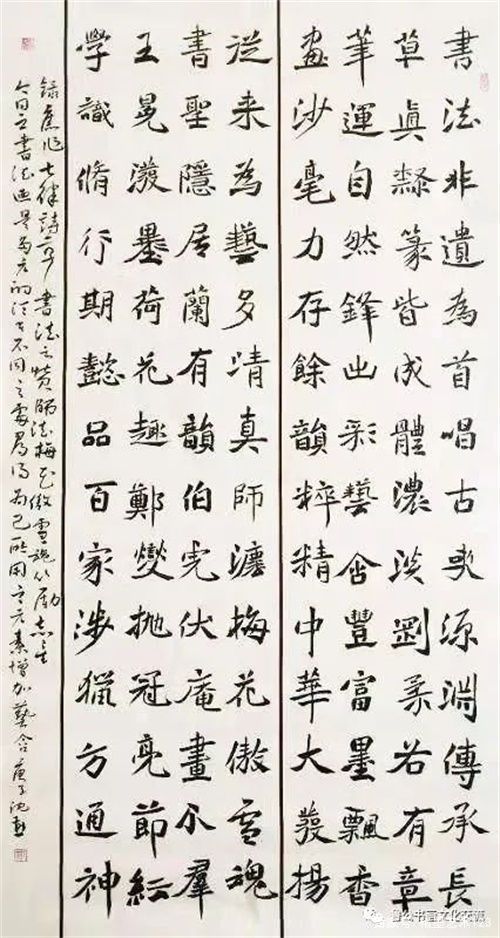 書法非遺為首唱古史源淵傳承長
草真隸篆皆成體濃淡剛柔若有章
筆運自然鋒出彩藝含豐富墨飄香
畫沙毫力存餘韻粹精中華大發揚
從来為藝多情真師灋梅花傲雪魂
書聖隱居蘭有韻伯虎伏庵畫不羣
王冕潑墨荷花趣鄭燮拋冠亮節紅
學識脩行期懿品百家涉獵方通神
錄舊作七律詩書法之贊師法梅花傲雪魂以勵志
今日之書法不同之處為己所用之元素增加藝含庚子
书画文化交流